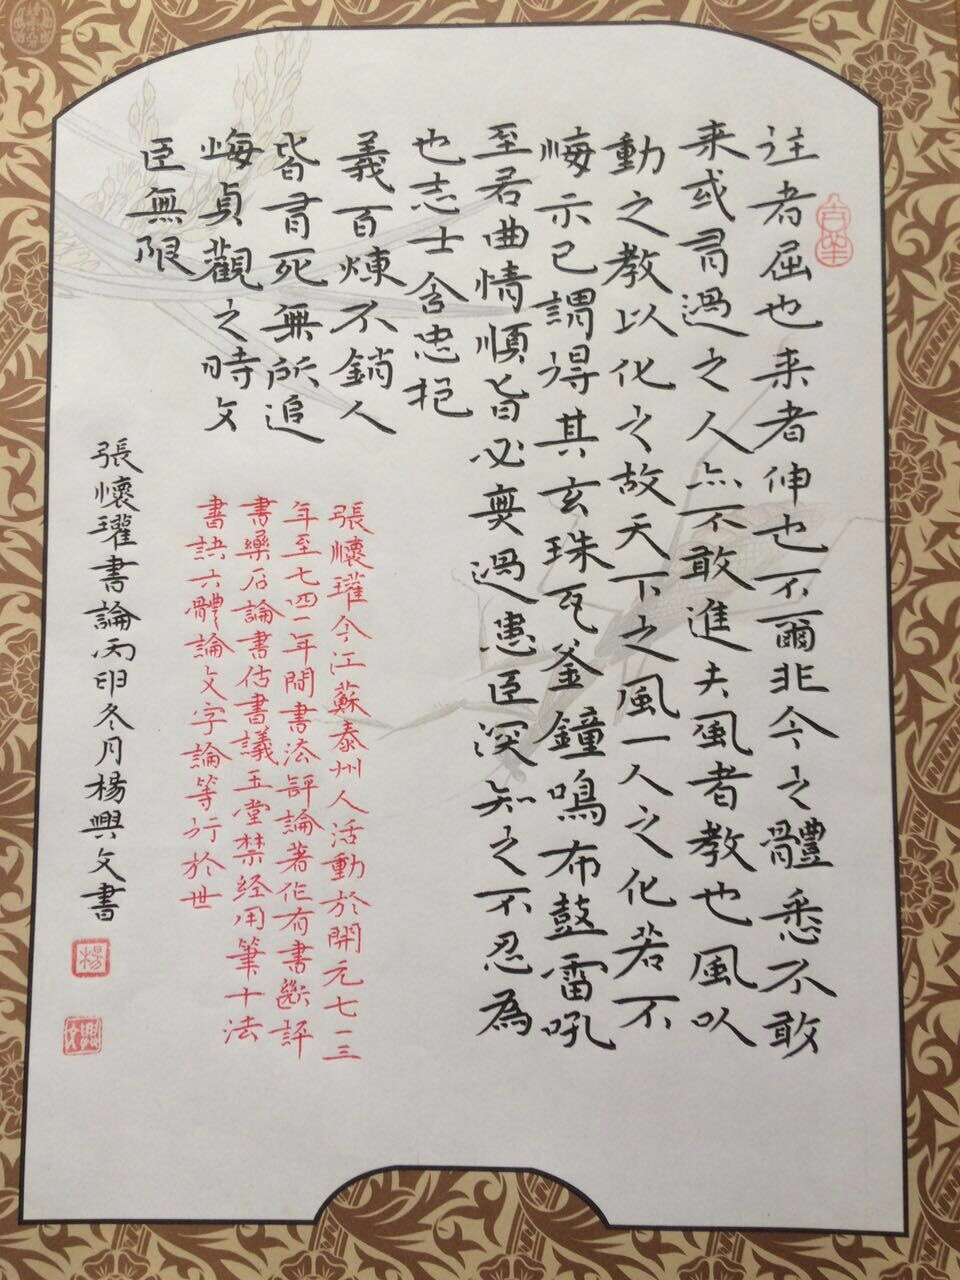 往者屈也来者伸也不爾非今之體悉不敢
来或有過之人亦不敢進夫風者教也風以
動之教以化之故天下之風一人之化若不
悔示已謂得其玄珠瓦釜鐘鳴布鼓雷吼
至君曲情順旨必無過患臣深知之不忍為
也志士含忠抱
義百煉不銷人
皆有死無所追
悔貞觀之時文
臣無限
張懷瓘今江蘇泰州人活動於開元七一三
年至七四一年間書法評論著作有書斷評
書藥石論書估書議玉堂禁经用筆十法
書訣六體論文字論等行於世
張懷瓘書論丙申冬月楊興文書
楊
興文